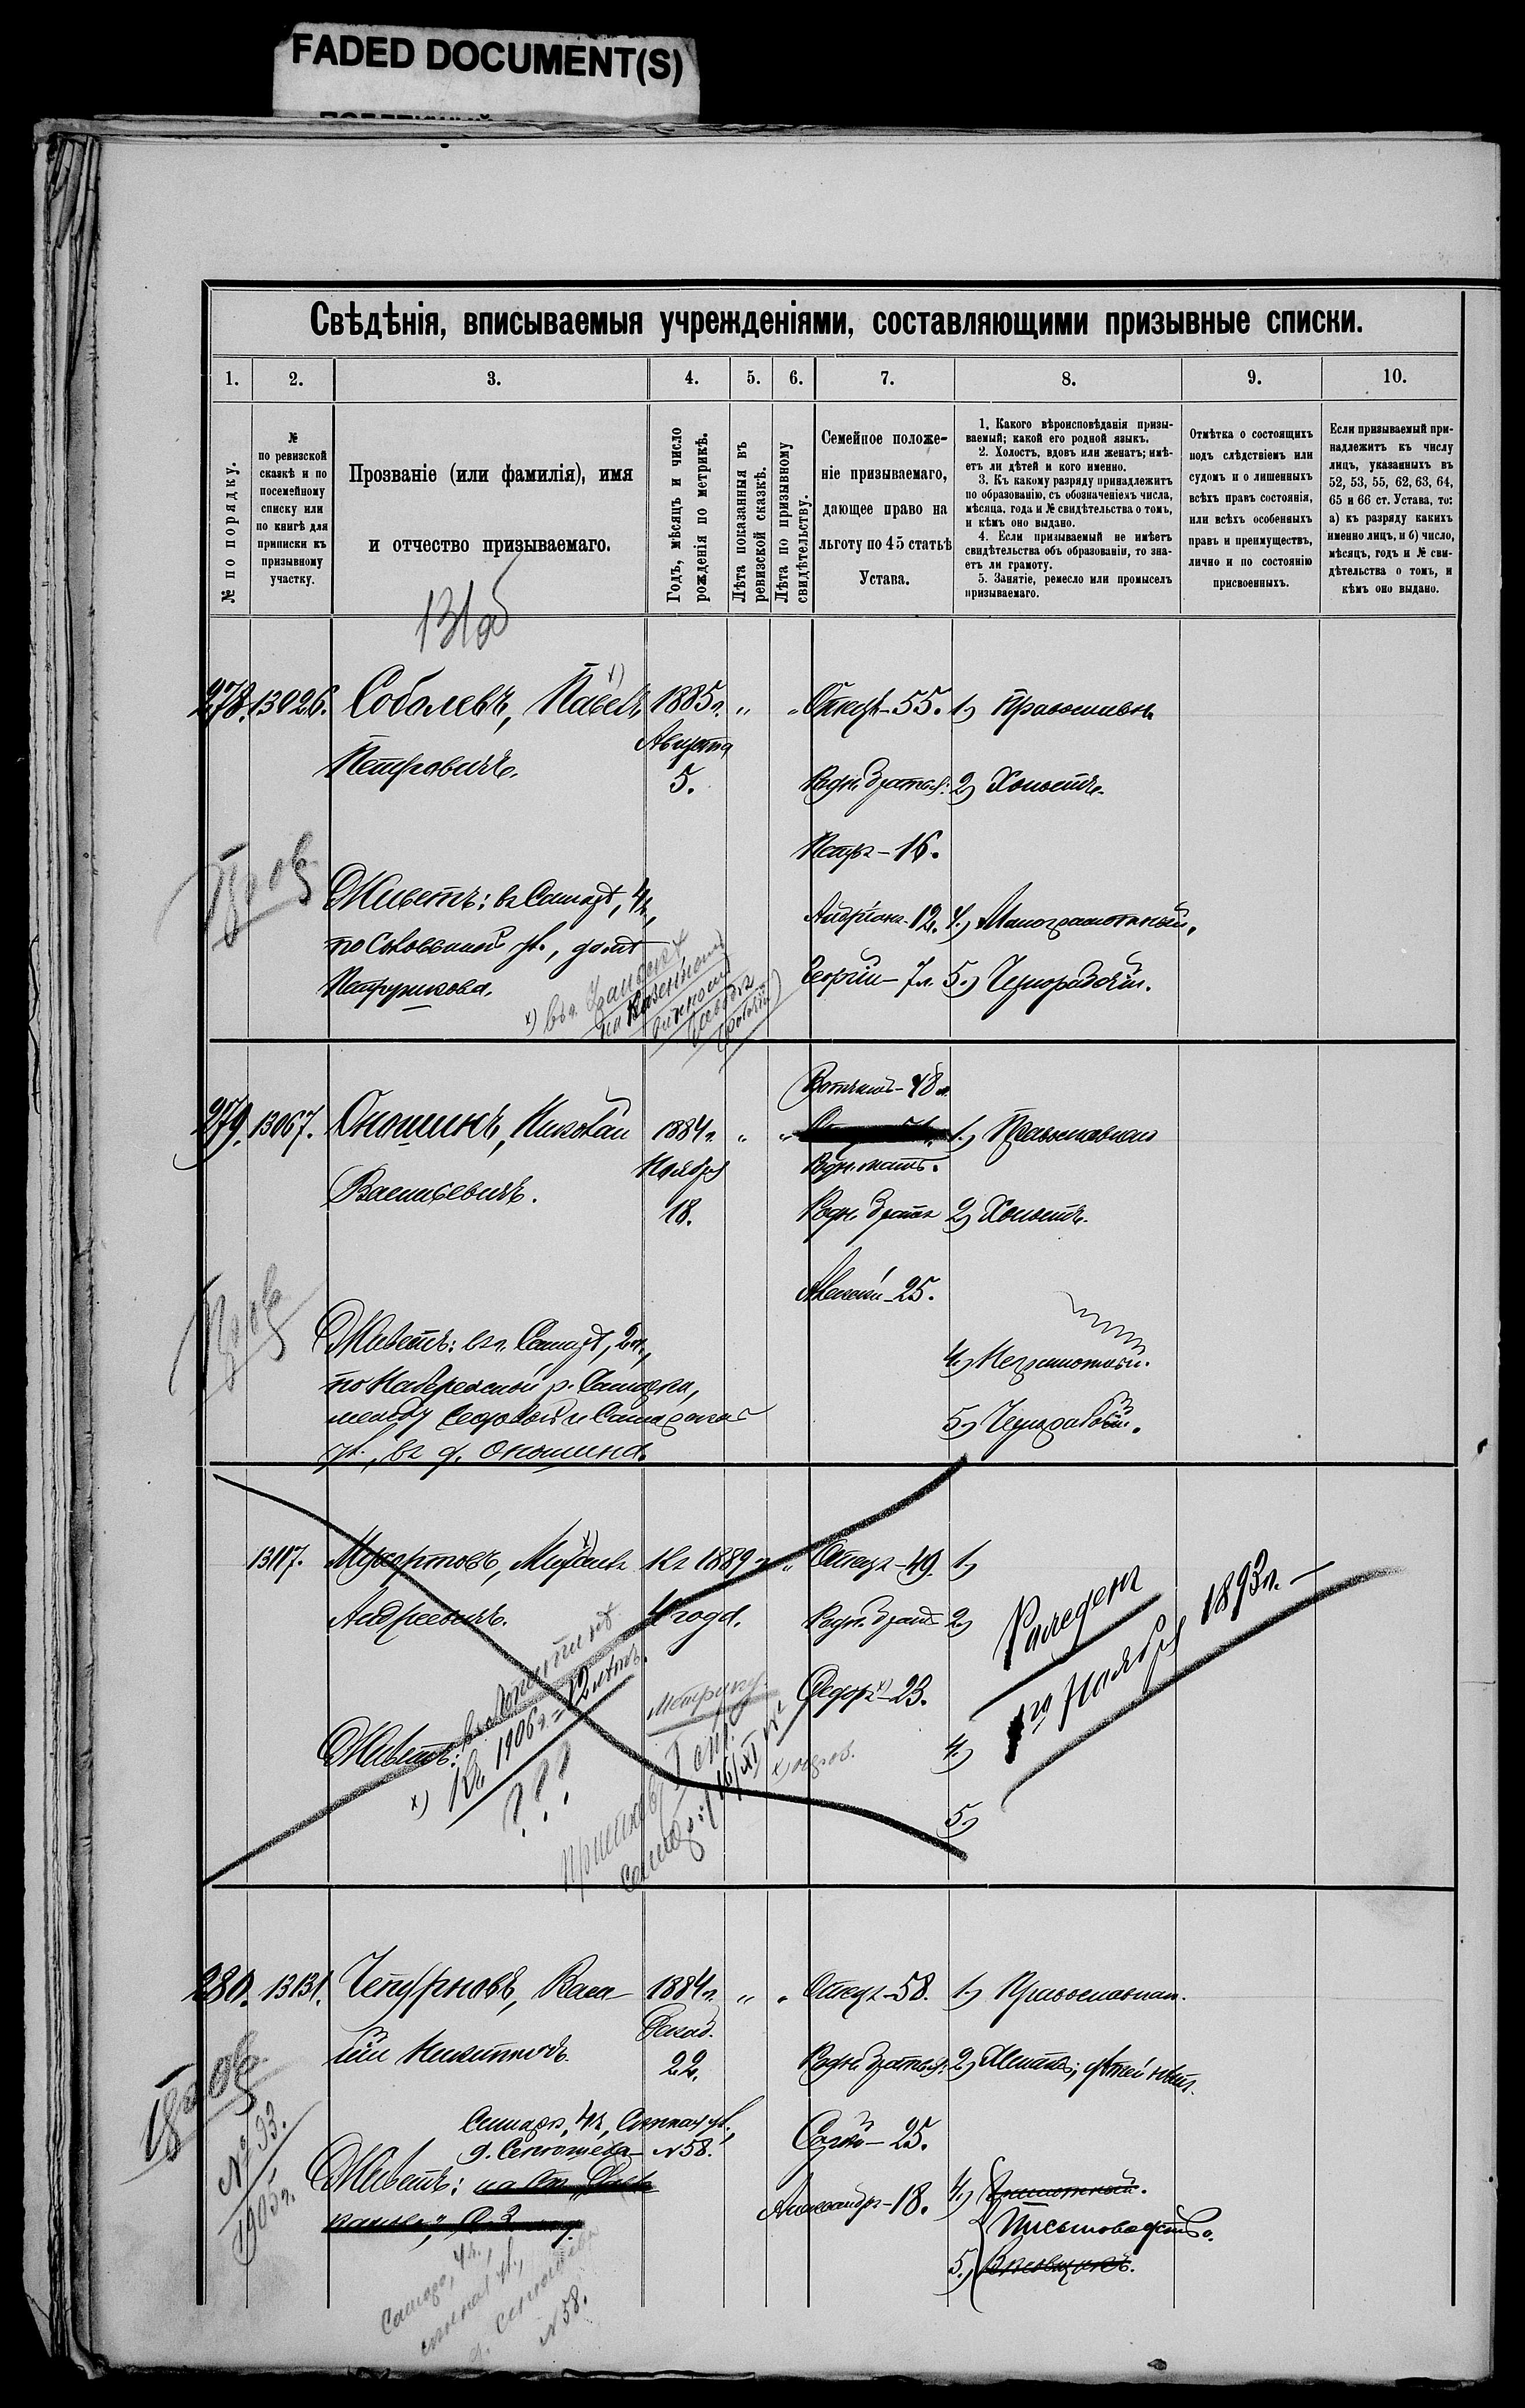 FADED DOCUMENT(S)
Свѣдѣнія, вписываемыя учрежденіями, составляющими призывные списки.
1. 2. 3. 4. 5. 6. 7. 8. 9. 10.
№ по порядку.
№
по ревизской
сказкѣ и по
посемейному
списку или
по книгѣ для
приписки къ
призывному
участку.
Прозваніе (или фамилія), имя
и отчество призываемаго.
Годъ, мѣсяцъ и число
рожденія по метрикѣ.
Лѣта показанныя въ
ревизской сказкѣ.
Лѣта по призывному
свидѣтельству.
Семейное положе-
ніе призываемаго,
дающее право на
льготу по 45 статьѣ
Устава.
1. Какого вѣроисповѣданія призы-
ваемый; какой его родной языкъ.
2. Холостъ, вдовъ или женатъ; имѣ-
етъ ли дѣтей и кого именно.
3. Къ какому разряду принадлежитъ
по образованію, съ обозначеніемъ числа,
мѣсяца, года и № свидѣтельства о томъ,
и кѣмъ оно выдано.
4. Если призываемый не имѣетъ
свидѣтельства объ образованіи, то зна-
етъ ли грамоту.
5. Занятіе, ремесло или промыселъ
призываемаго.
Отмѣтка о состоящихъ
подъ слѣдствіемъ или
судомъ и о лишенныхъ
всѣхъ правъ состоянія,
или всѣхъ особенныхъ
правъ и преимуществъ,
лично и по состоянію
присвоенныхъ.
Если призываемый при-
надлежитъ къ числу
лицъ, указанныхъ въ
52, 53, 55, 62, 63, 64,
65 и 66 ст. Устава, то:
а) къ разряду какихъ
именно лицъ, и б) число,
мѣсяцъ, годъ и № сви-
дѣтельства о томъ, и
кѣмъ оно выдано.
131 об
278. 13026. Соболевъ, Павелъ х) 1885 г. „ „ Отецъ - 55. 1) Православн.
Петровичъ. Августа 5. Родн. братья: 2) Холостъ.
Петръ - 16.
Живетъ: въ Самарѣ, 4 ч,
Андріянъ - 12. 4.) Малограмотный.
по Соловьиной ул., домѣ
Петрушкова.
Георгій - 7 л. 5.) Чернорабочій.
279. 13067. Окошинъ, Николай 1884 г. „ „ Вотчимъ - 48 л. 1.) Православнаго
Васильевичъ. Ноября 18. Родн. мать.
Родн. братъ 2) Холостъ.
Алексѣй - 25.
Живетъ: въ г. Самарѣ, 2 ч.,
4.) Неграмотный.
по Набережной р. Самарки,
между
5.) Чернорабочій.
ул., въ д. Окошина.
13117. Мухортовъ, Михаилъ х) Къ 1889 г. „ Отецъ - 49. 1)
Андреевичъ. 4 года. Родн. братъ 2)
Федоръ х) - 23.
Живетъ:
х) Къ 1906 г. = 12 лѣтъ.
???
Метрику
4.)
5.)
Рожденъ
1го Ноября 1893 г. -
280. 13131. Чепурновъ, Васи- 1884 г. „ „ Отецъ - 58. 1) Православнаго.
лій Никитичъ. Декаб. 22. Родн. братья: 2) Женатъ; дѣтей нѣтъ.
Самара, 4 ч, Сѣнная ул., № 58.
Сергѣй - 25.
Живетъ:
Александръ - 18. 4.) Грамотный.
Письмоводство.
5.)
№ 33.
1905 г.
Самара, 4 ч.,
Сѣнная ул.,
№ 58.